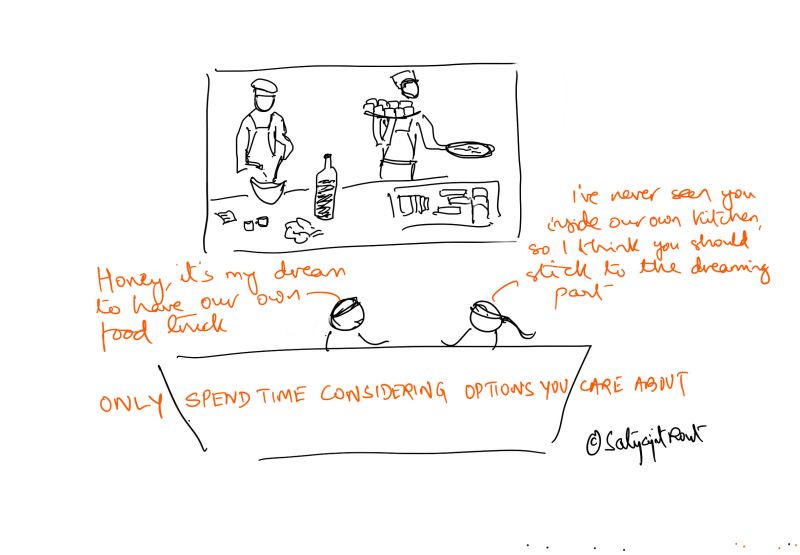 i've never seen you
inside our own kitchen,
so I think you should
stick to the dreaming
part
Honey, it's my dream
to have our own
food truck
ONLY SPEND TIME CONSIDERING OPTIONS YOU CARE ABOUT
©Satyajit Rout